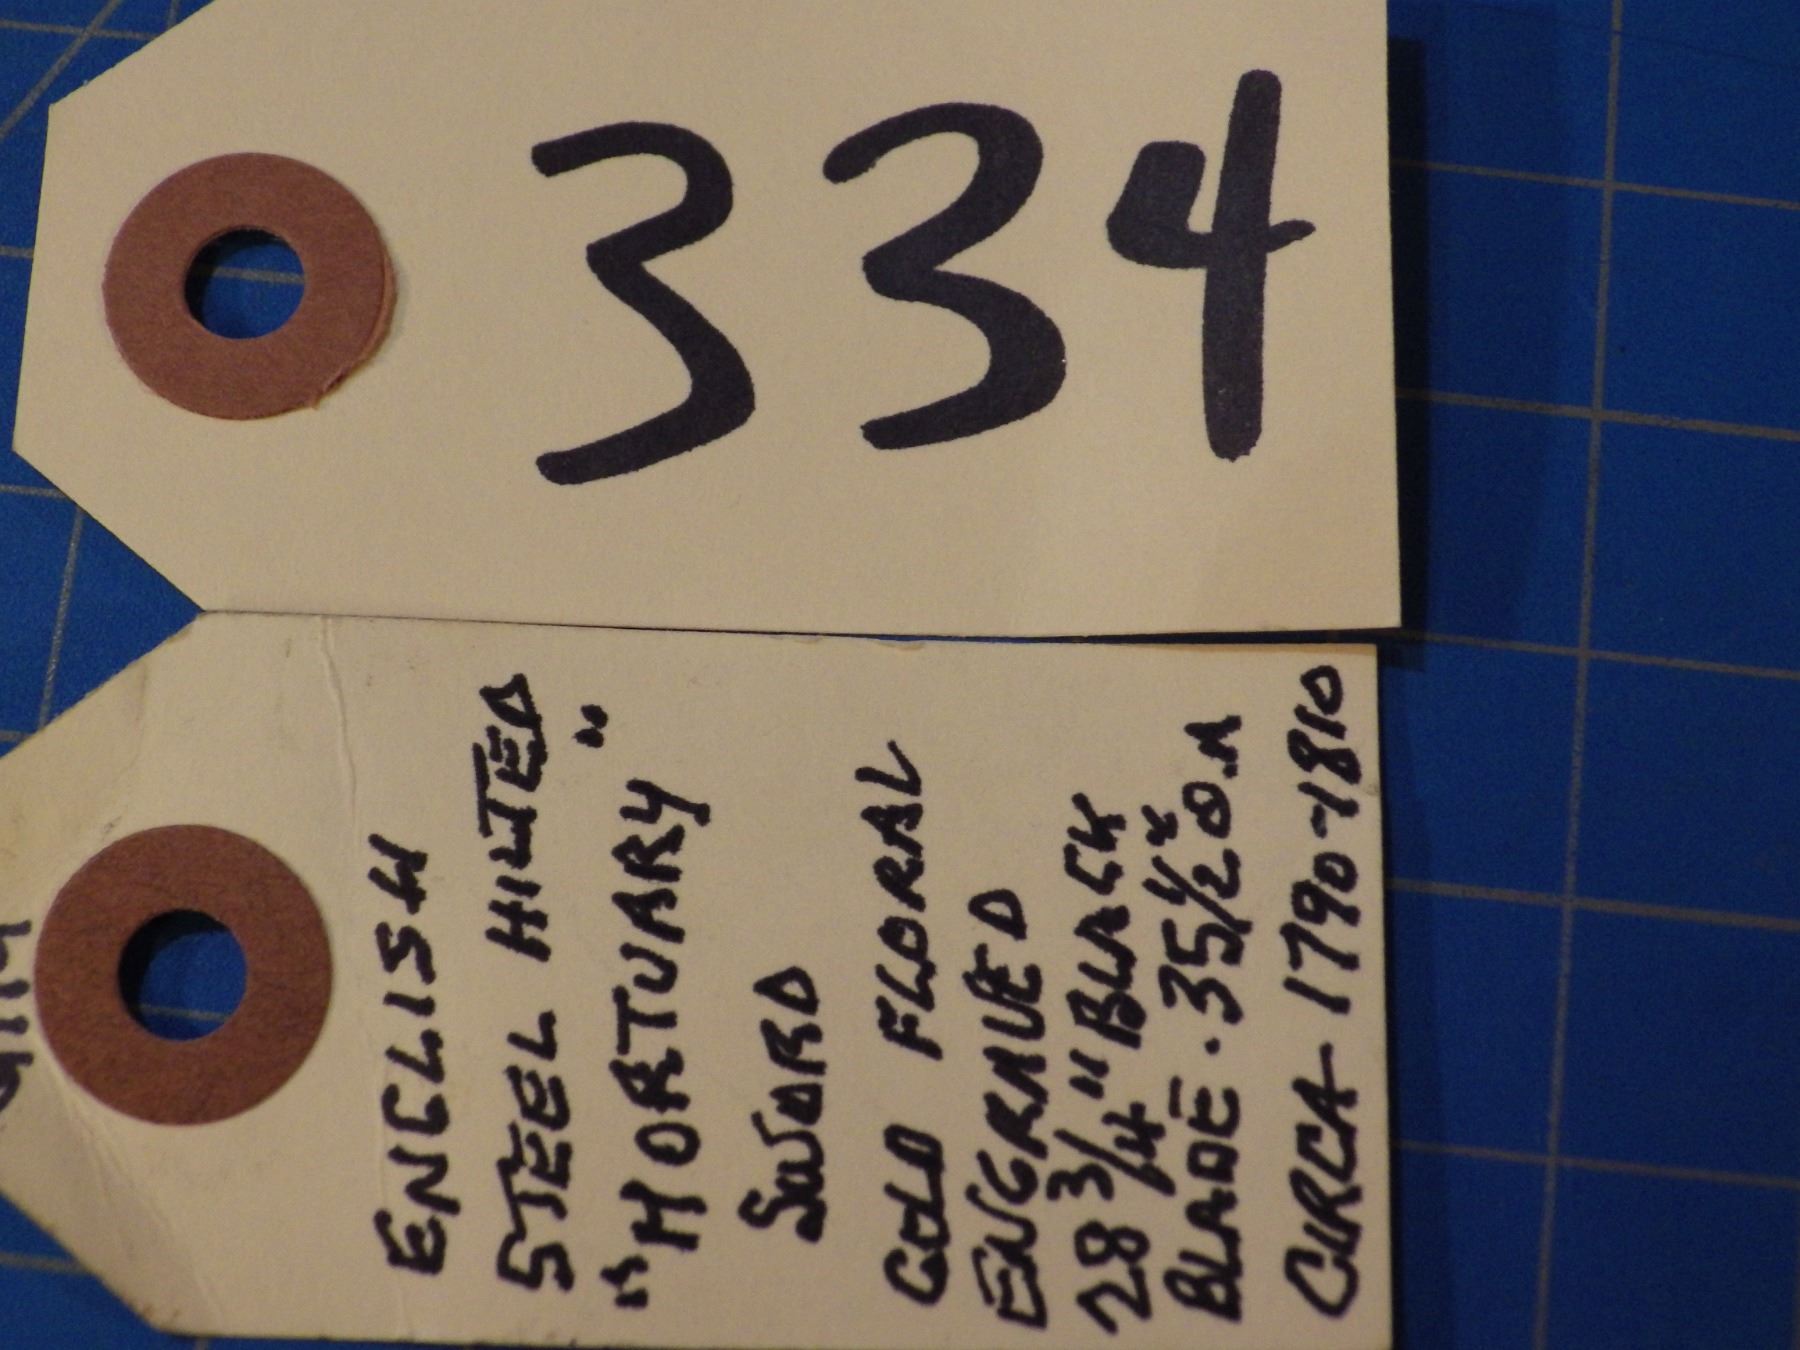 334
ENGLISH
STEEL HILTED
"MORTUARY"
SWORD
GOLD FLORAL
ENGRAVED
28 3/4" BLACK
BLADE. 35 1/2" O.A
CIRCA-1790-1810